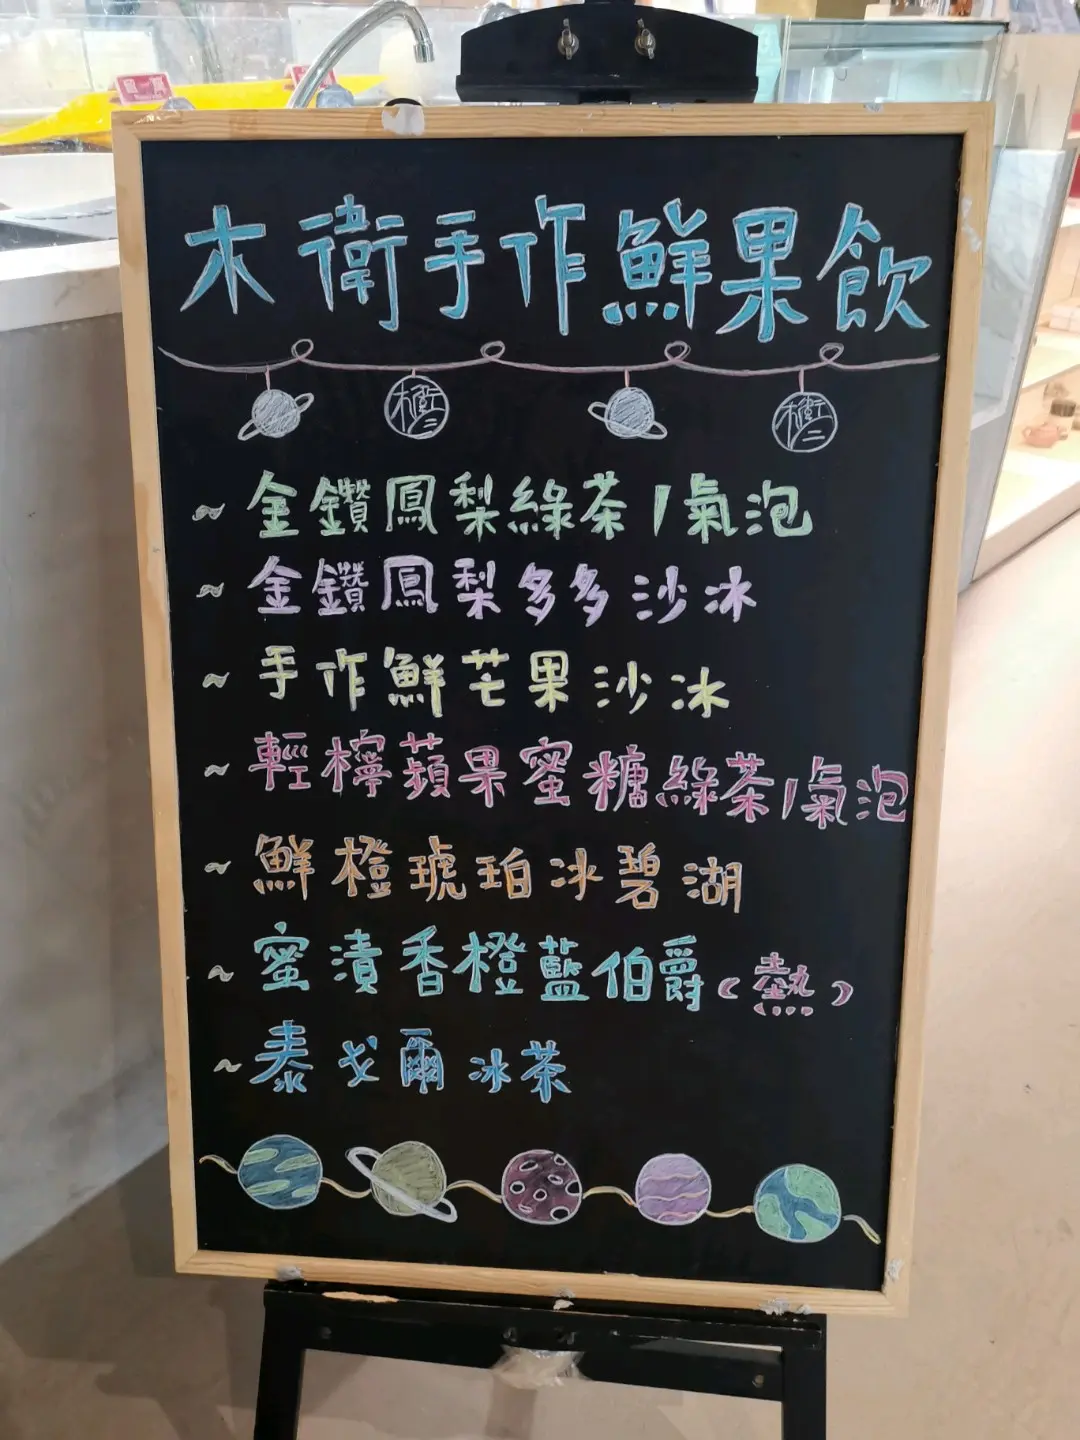 木衛手作鮮果飲
木衛二
木衛二
~ 金鑽鳳梨綠茶/氣泡
~ 金鑽鳳梨多多沙冰
~ 手作鮮芒果沙冰
~ 輕檸蘋果蜜糖綠茶/氣泡
~ 鮮橙琥珀冰碧湖
~ 蜜漬香橙藍伯爵(熱)
~ 泰戈爾冰茶